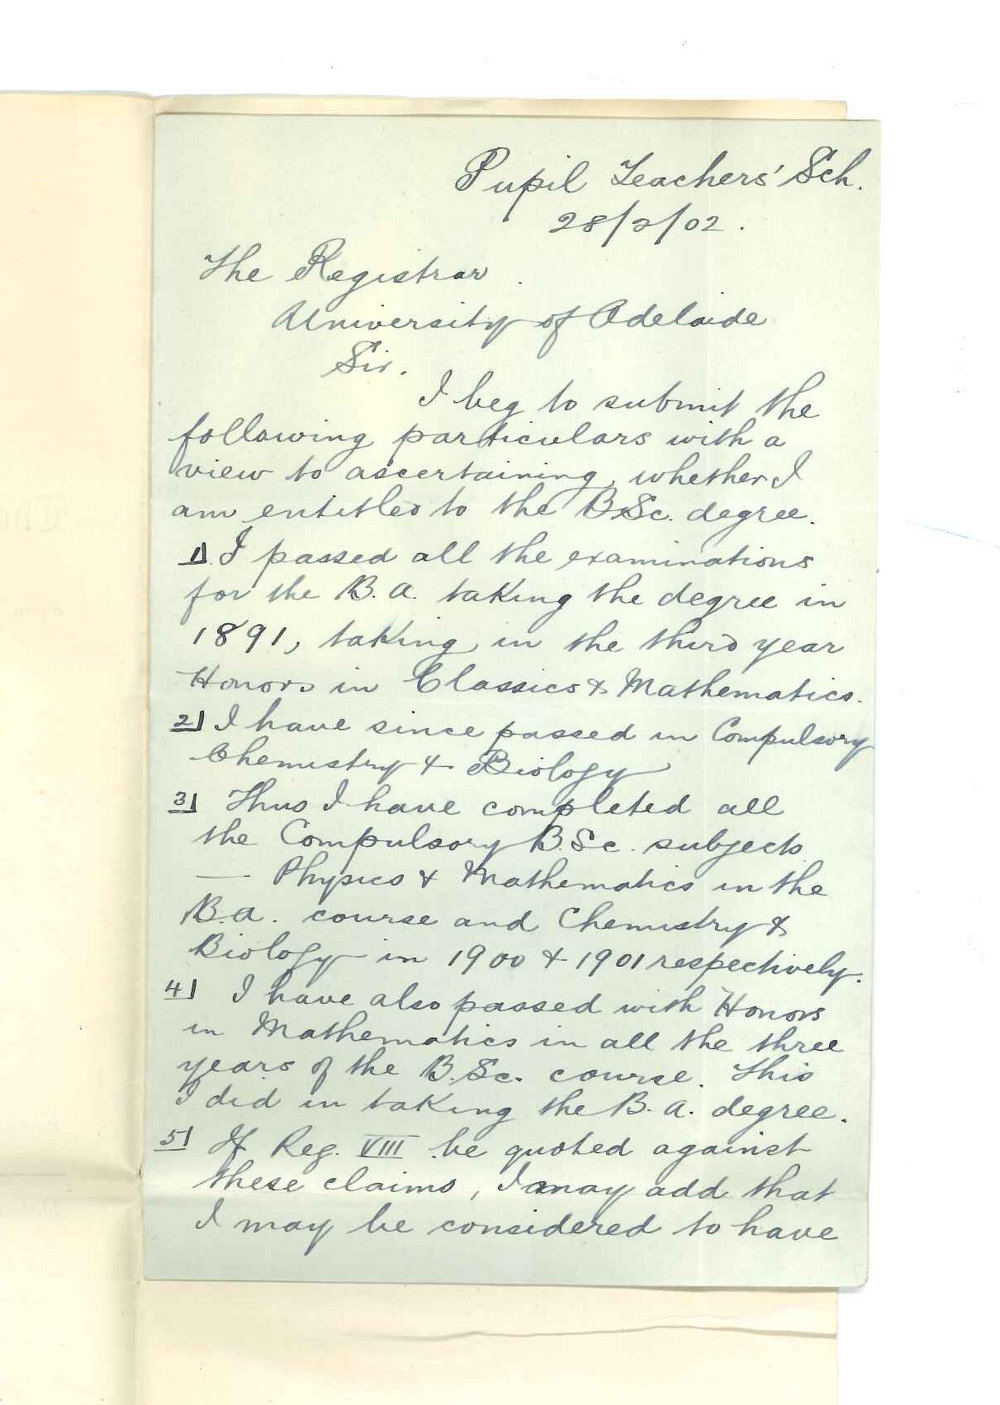 Pupil Teachers' Sch.
28/2/02.
The Registrar
University of Adelaide
Sir.
I beg to submit the
following particulars with a
view to ascertaining whether I
am entitled to the B.Sc. degree.
1) I passed all the examinations
for the B.A. taking the degree in
1891, taking in the third year
Honors in Classics & Mathematics.
2) I have since passed in Compulsory
Chemistry & Biology
3) Thus I have completed all
the Compulsory B.Sc. subjects
— Physics & Mathematics in the
B.A. course and Chemistry &
Biology in 1900 & 1901 respectively.
4) I have also passed with Honors
in Mathematics in all the three
years of the B.Sc. course. This
I did in taking the B.A. degree.
5) If Reg. VIII be quoted against
these claims, I may add that
I may be considered to have